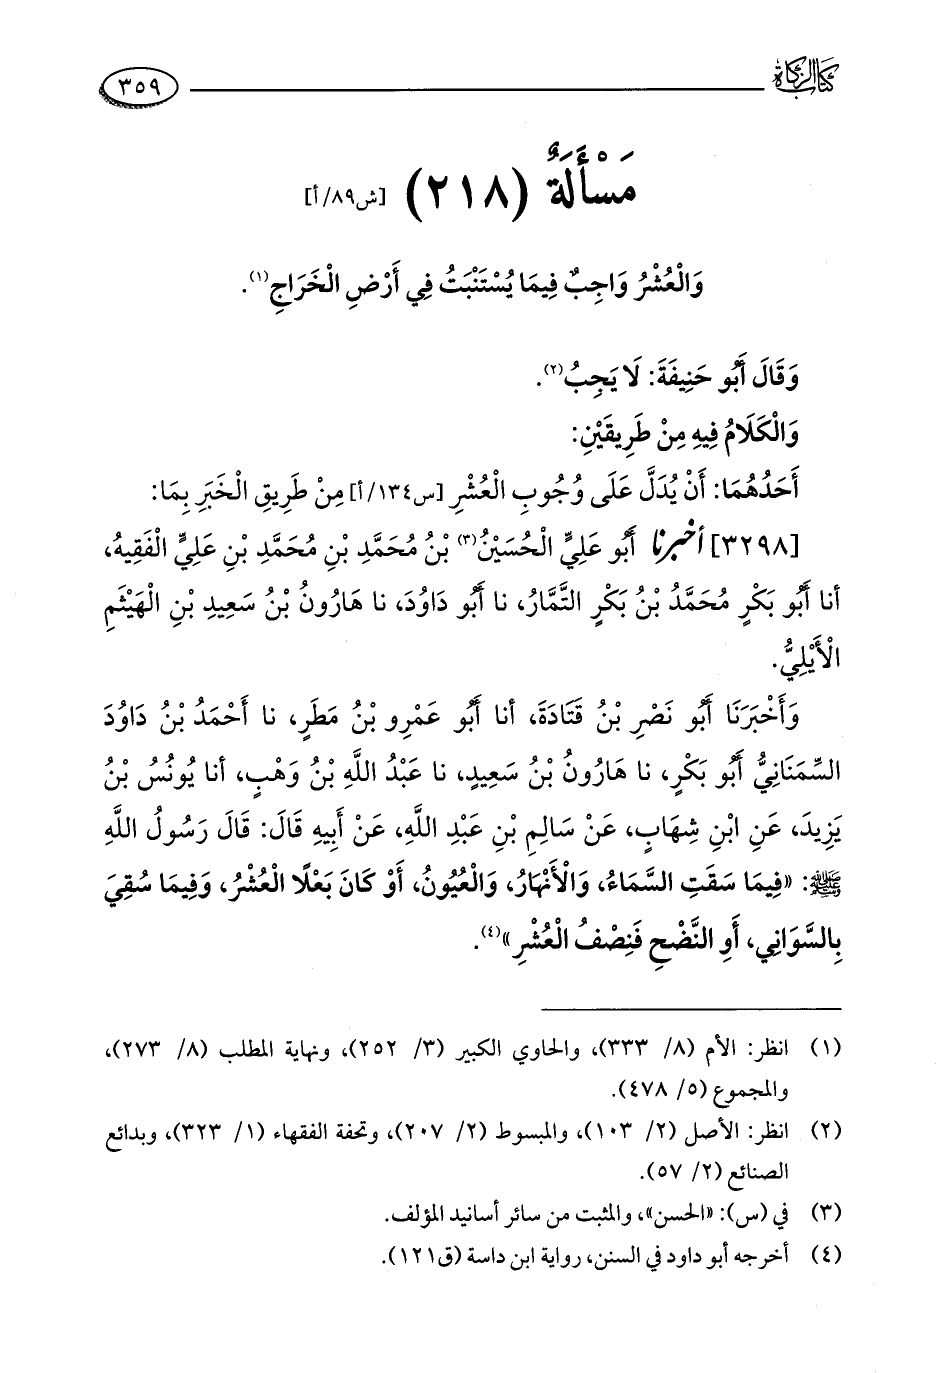 كتاب الزكاة
٣٥٩
مَسْأَلَةٌ (٢١٨) [ش٨٩/أ]
وَالْعُشْرُ وَاجِبٌ فِيمَا يُسْتَنْبَتُ فِي أَرْضِ الْخَرَاجِ(١).
وَقَالَ أَبُو حَنِيفَةَ: لَا يَجِبُ(٢).
وَالْكَلَامُ فِيهِ مِنْ طَرِيقَيْنِ:
أَحَدُهُمَا: أَنْ يُدَلَّ عَلَى وُجُوبِ الْعُشْرِ [س١٣٤/أ] مِنْ طَرِيقِ الْخَبَرِ بِمَا:
[٣٢٩٨] أخبرنا أَبُو عَلِيٍّ الْحُسَيْنُ(٣) بْنُ مُحَمَّدِ بْنِ مُحَمَّدِ بْنِ عَلِيٍّ الْفَقِيهُ،
أنا أَبُو بَكْرٍ مُحَمَّدُ بْنُ بَكْرٍ التَّمَّارُ، نا أَبُو دَاوُدَ، نا هَارُونُ بْنُ سَعِيدِ بْنِ الْهَيْثَمِ
الْأَيْلِيُّ.
وَأَخْبَرَنَا أَبُو نَصْرِ بْنُ قَتَادَةَ، أنا أَبُو عَمْرِو بْنُ مَطَرٍ، نا أَحْمَدُ بْنُ دَاوُدَ
السِّمَنَانِيُّ أَبُو بَكْرٍ، نا هَارُونُ بْنُ سَعِيدٍ، نا عَبْدُ اللَّهِ بْنُ وَهْبٍ، أنا يُونُسُ بْنُ
يَزِيدَ، عَنِ ابْنِ شِهَابٍ، عَنْ سَالِمِ بْنِ عَبْدِ اللَّهِ، عَنْ أَبِيهِ قَالَ: قَالَ رَسُولُ اللَّهِ
ﷺ: «فِيمَا سَقَتِ السَّمَاءُ، وَالْأَنْهَارُ، وَالْعُيُونُ، أَوْ كَانَ بَعْلًا الْعُشْرُ، وَفِيمَا سُقِيَ
بِالسَّوَانِي، أَوِ النَّضْحِ فَنِصْفُ الْعُشْرِ»(٤).
(١) انظر: الأم (٨/ ٣٣٣)، والحاوي الكبير (٣/ ٢٥٢)، ونهاية المطلب (٨/ ٢٧٣)،
والمجموع (٥/ ٤٧٨).
(٢) انظر: الأصل (٢/ ١٠٣)، والمبسوط (٢/ ٢٠٧)، وتحفة الفقهاء (١/ ٣٢٣)، وبدائع
الصنائع (٢/ ٥٧).
(٣) في (س): «الحسن»، والمثبت من سائر أسانيد المؤلف.
(٤) أخرجه أبو داود في السنن، رواية ابن داسة (ق١٢١).